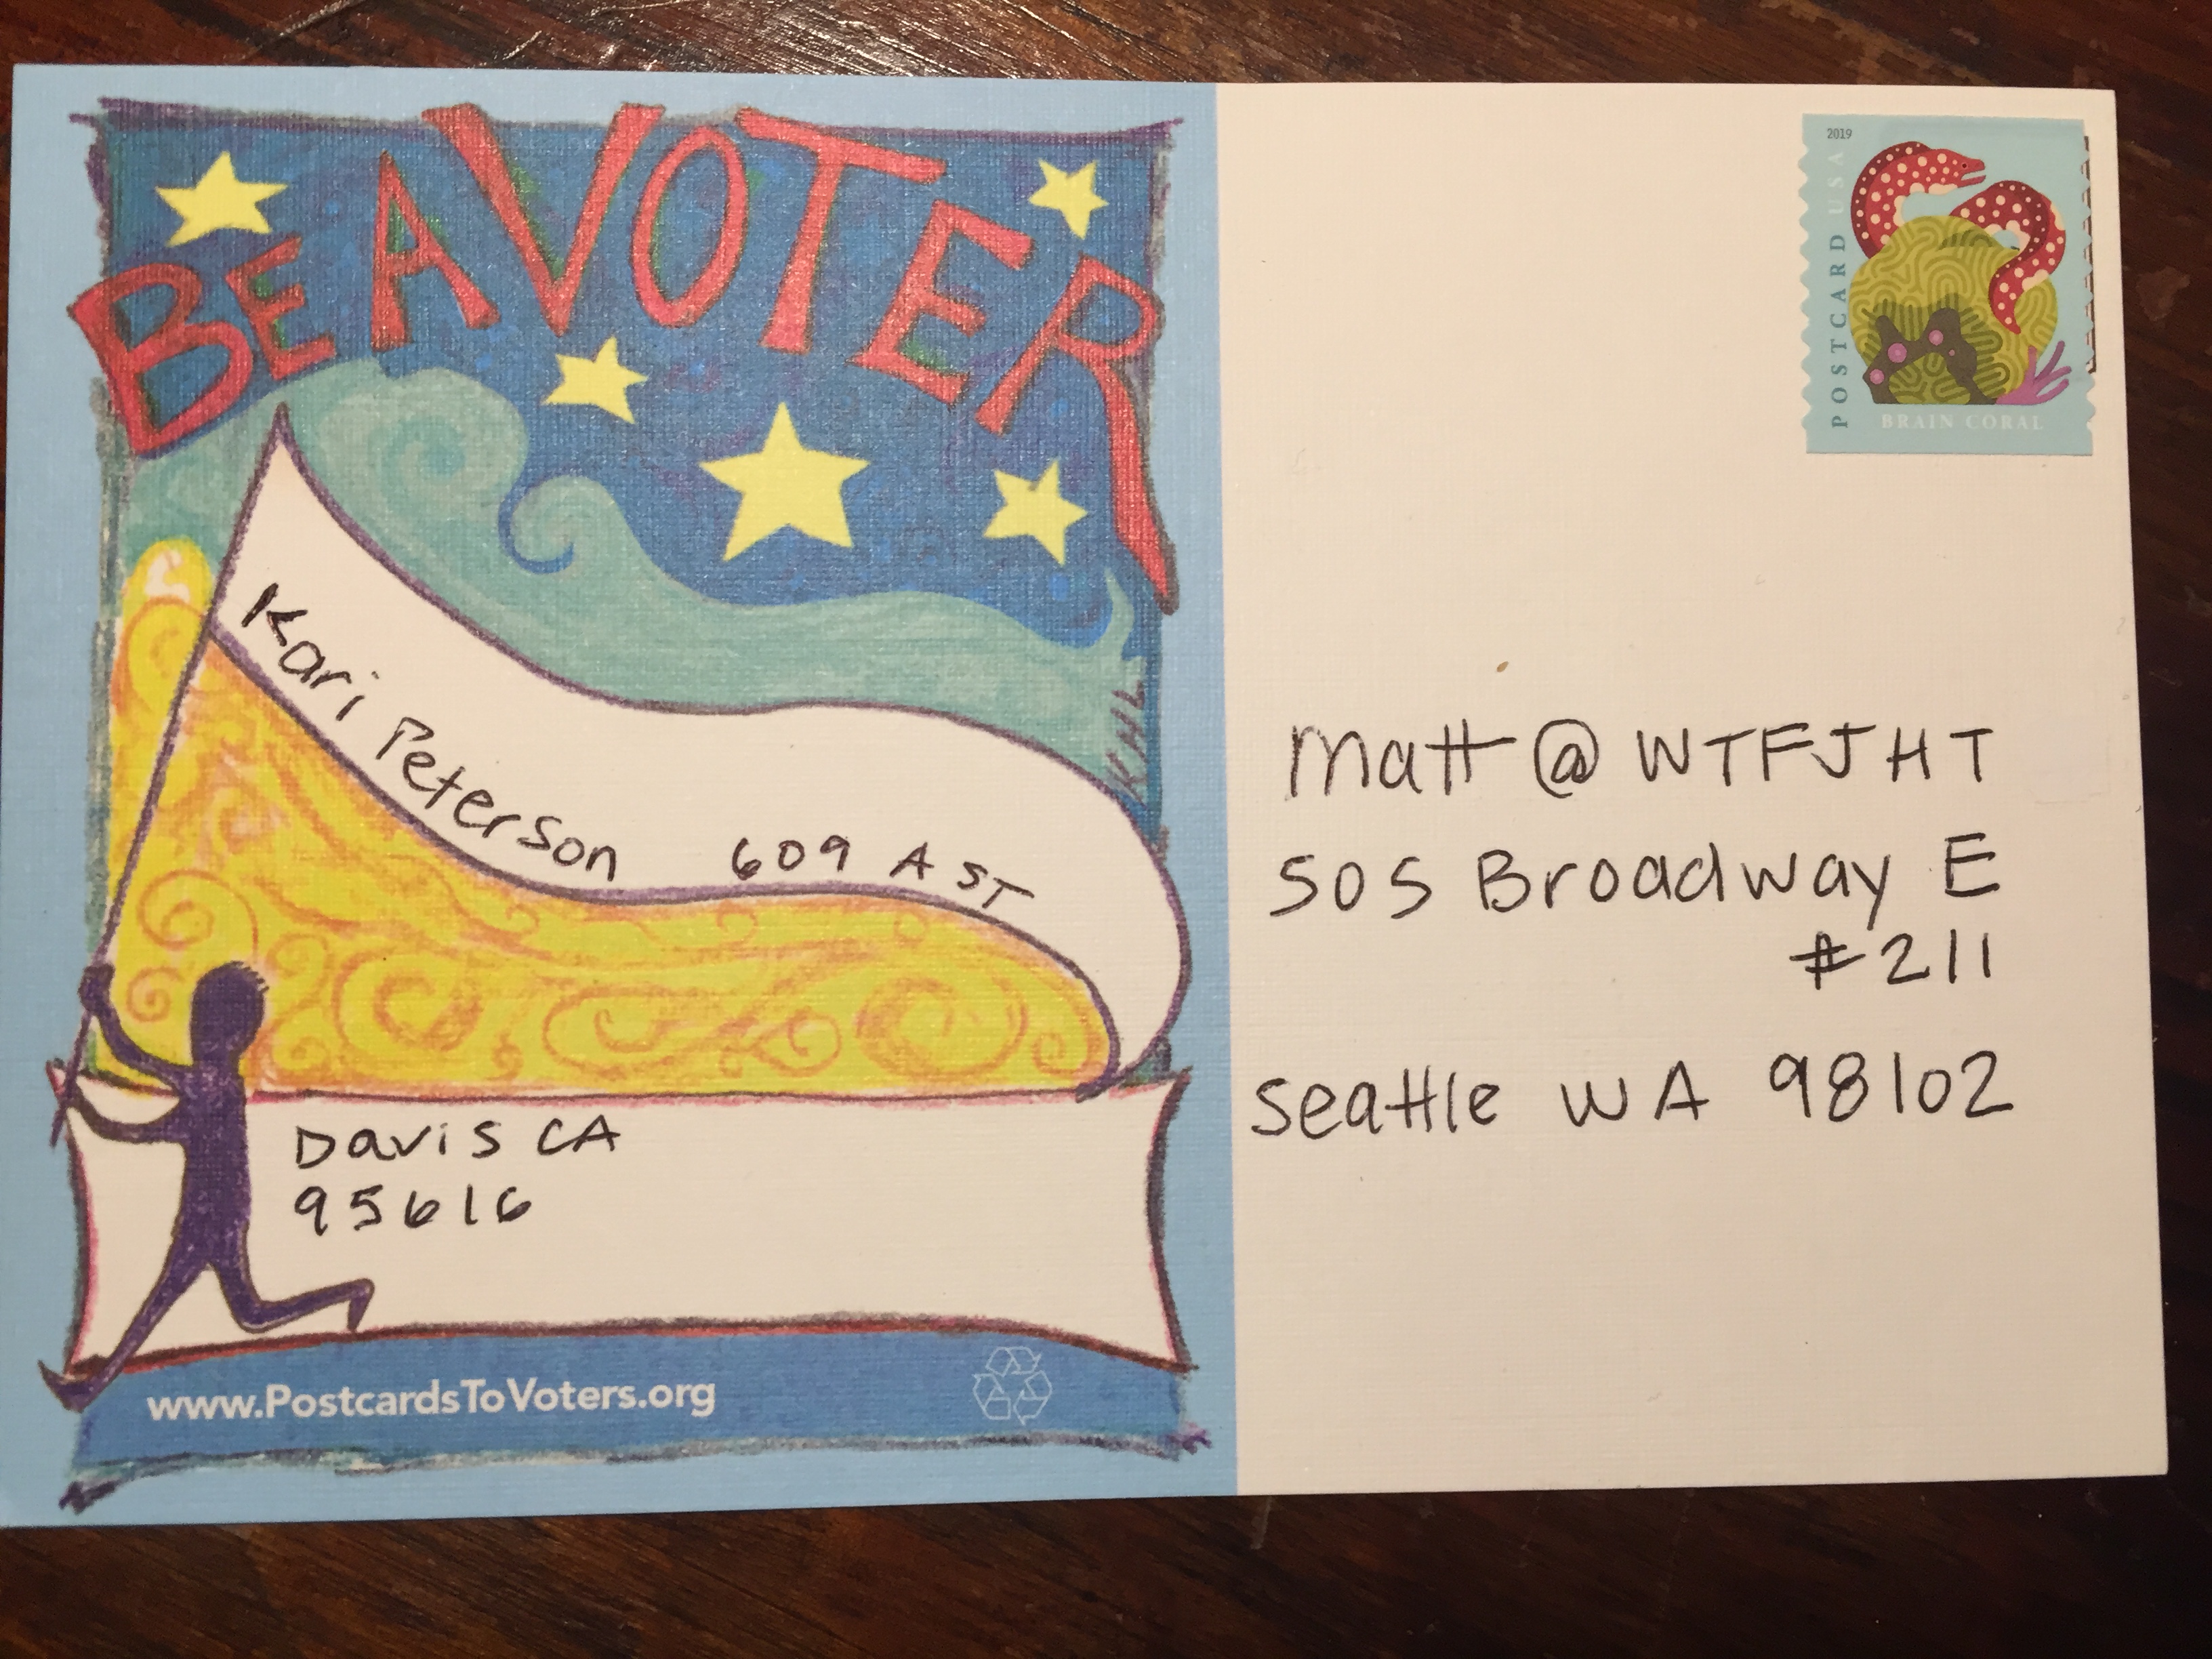 BE A VOTER
Kari Peterson 609 A ST
KHL
Davis CA
95616
www.PostcardsToVoters.org
2019
POSTCARD USA
BRAIN CORAL
Matt @ WTFJHT
505 Broadway E
#211
Seattle WA 98102